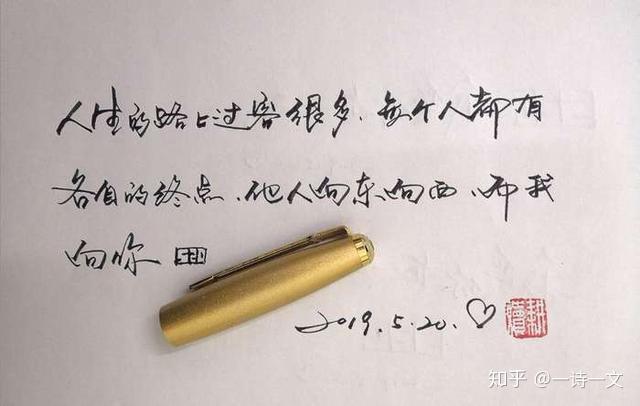 人生的路上过客很多，每个人都有
各自的终点，他人向东向西，而我
向你
2019.5.20.♡
知乎 @一诗一文